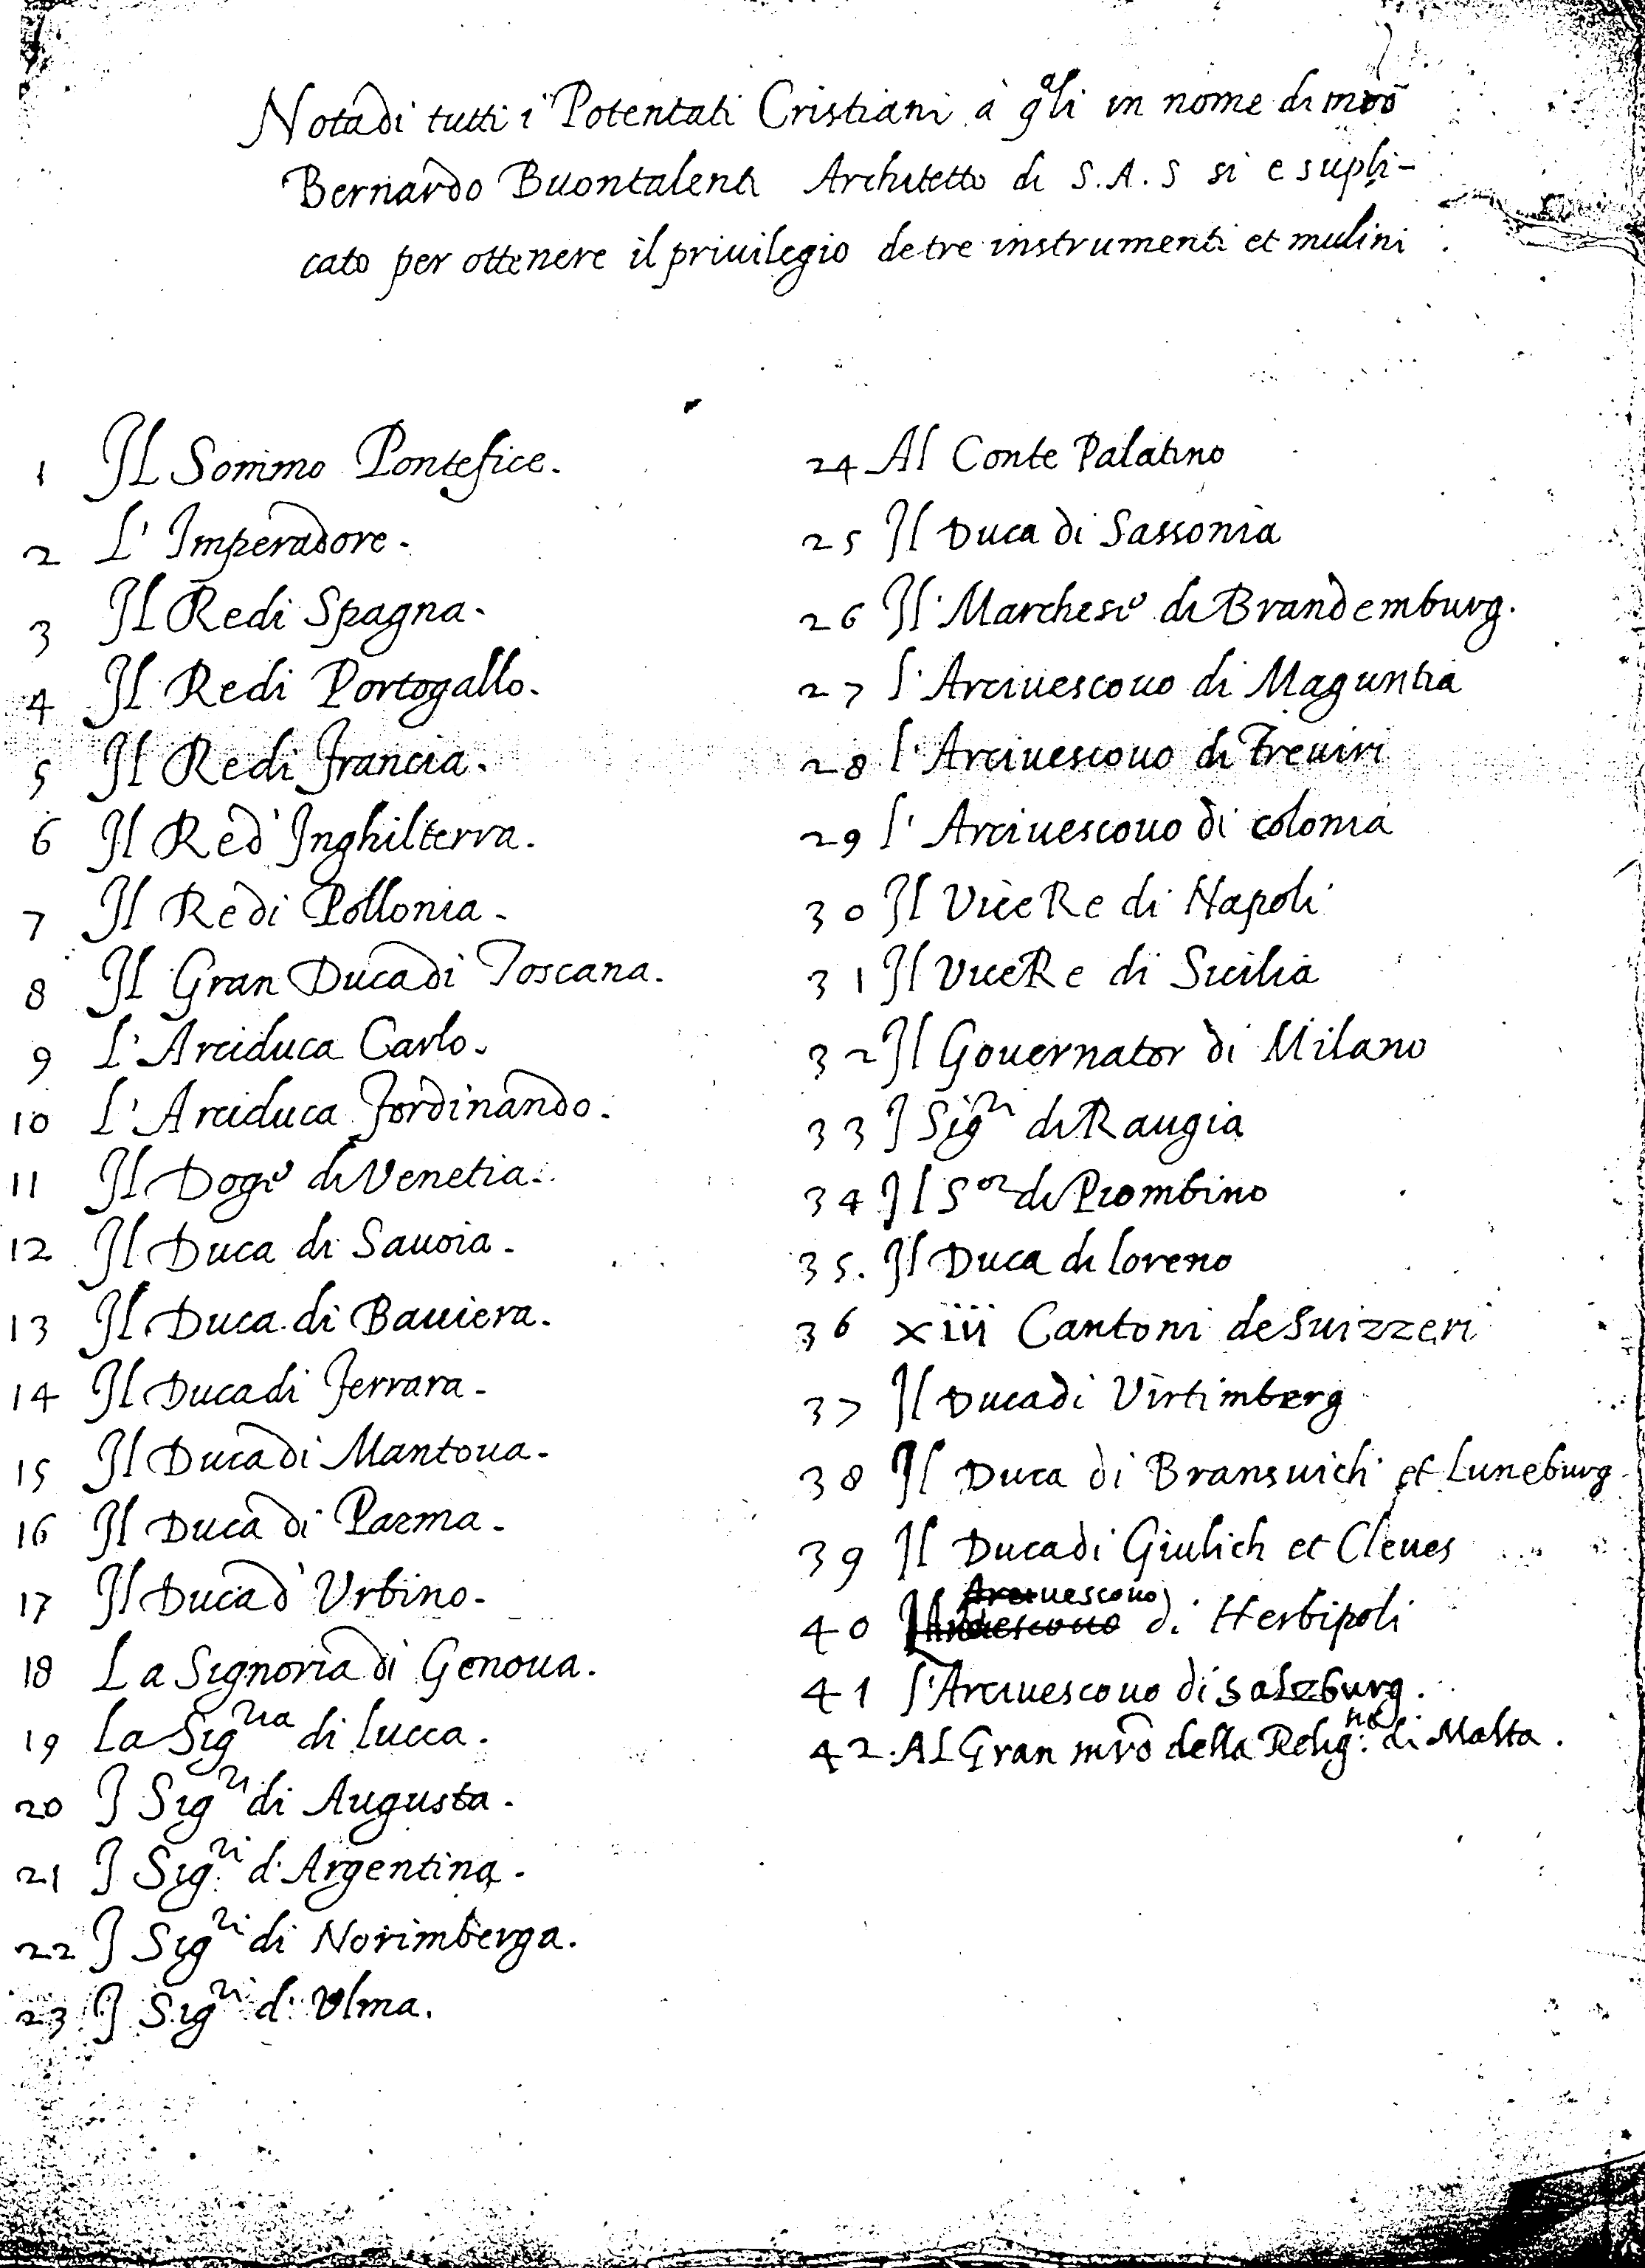 Nota di tutti i Potentati Cristiani à q̃li in nome di mrõ
Bernardo Buontalenti Architetto di S.A.S si e supli-
cato per ottenere il priuilegio de tre instrumenti et mulini
1 Il Sommo Pontefice.
2 L'Imperadore.
3 Il Re di Spagna.
4 Il Re di Portogallo.
5 Il Re di Francia.
6 Il Re d'Inghilterra.
7 Il Re di Pollonia.
8 Il Gran Duca di Toscana.
9 L'Arciduca Carlo.
10 L'Arciduca Ferdinando.
11 Il Doge di Venetia.
12 Il Duca di Sauoia.
13 Il Duca di Bauiera.
14 Il Duca di Ferrara.
15 Il Duca di Mantoua.
16 Il Duca di Parma.
17 Il Duca d'Urbino.
18 La Signoria di Genoua.
19 La Sigria di lucca.
20 I Sigri di Augusta.
21 I Sig.ri d'Argentina.
22 I Sigri di Norimberga.
23 I Sigri d'Ulma.
24 Al Conte Palatino
25 Il Duca di Sassonia
26 Il Marchese di Brandemburg.
27 l'Arciuescouo di Maguntia
28 l'Arciuescouo di Treuiri
29 l'Arciuescouo di colonia
30 Il ViceRe di Napoli
31 Il ViceRe di Sicilia
32 Il Gouernator di Milano
33 I Sigri di Raugia
34 Il Sor di Piombino
35. Il Duca di loreno
36 xiii Cantoni de Suizzeri
37 Il Duca di Virtimberg
38 Il Duca di Bransuich et Luneburg
39 Il Duca di Giulich et Cleues
40 Arciuescouo di Herbipoli
41 l'Arciuescouo di Salzburg.
42. Al Gran mrõ della Relig.ne di Malta.